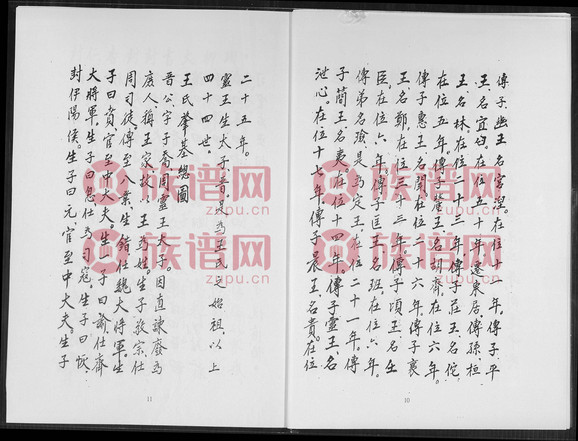 傳子幽王名宮湼。在位十一年。傳子平
王、名宜臼、在位五十一年。遷東居。傳孫桓
王、名林、在位二十三年。傳子莊王、名佗、
在位十五年。傳子釐王、名胡齊、在位五年。
傳子惠王、名閬、在位二十六年。傳子襄
王、名鄭、在位三十三年。傳子頃王、名壬
臣、在位六年。傳子匡王、名班、在位六年。
傳弟名瑜、是為定王、在位二十一年。傳
子簡王、名夷。在位十四年。傳子靈王、名
泄心。在位十七年。傳子景王、名貴。在位
10
二十五年。
靈王生太子晋、是為王氏之始祖、以上
四十四世。
王氏肇基總圖
晋公、字子喬、周靈王太子。因直諫廢為
庶人、稱王家、故以王為姓。生子敬宗、仕
周司徒、傳至八業、生錯、仕魏大將軍、生
子曰賁、官至中大夫、生一子曰諭、仕齊
大將軍、生子曰忽、仕為司寇。生子曰恢、
封伊陽侯。生子曰元、官至中大夫。生子
11
族谱网
zupu.cn
族谱网
zupu.cn
族谱网
zupu.cn
族谱网
zupu.cn